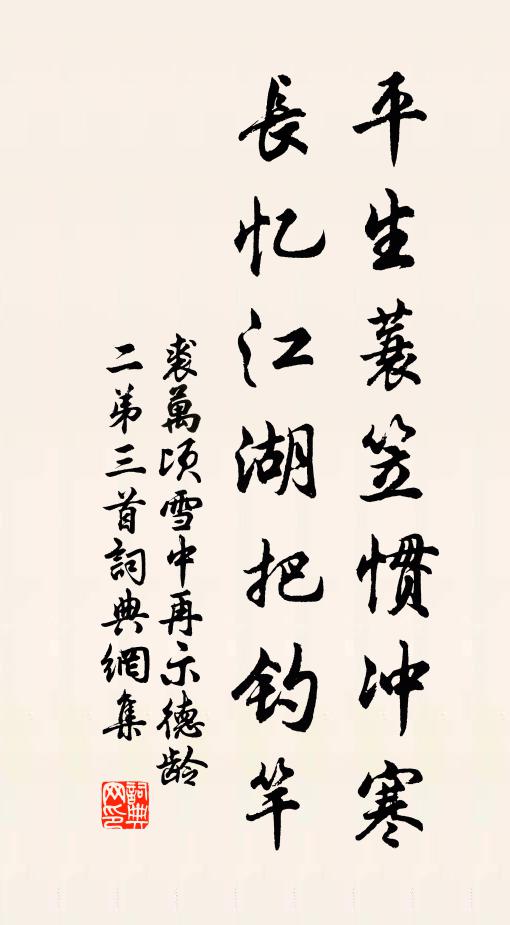 平生蓑笠惯冲寒
長忆江湖把钓竿
裘萬顷雪中再示德龄
二弟三首詞典網集
詞典网印